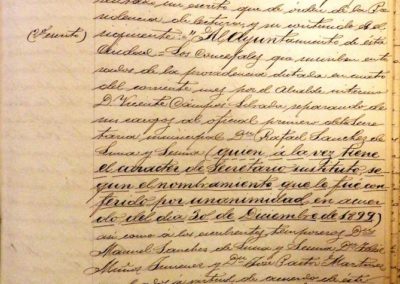 un escrito que de órden de la Pre
sidencia dá lectura, y su contenido es el
(Escrito) siguiente: "Al Ayuntamiento de ésta
Ciudad = Los Concejales que suscriben ente
rados de la providencia dictada en cuatro
del corriente mes por el Alcalde interino
D. Vicente Campos Silvado separando de
sus cargos al oficial primero de la Secre
taría municipal Dn Rafael Sanchez de
Luna y Serna (quien á la vez tiene
el carácter de Secretario sustituto, se
gun el nombramiento que le fue con
ferido por unanimidad en acuer
do del dia 30 de Diciembre de 1899)
así como á los escribientes temporeros Dn
Manuel Sanchez de Luna y Serna, Dn
Muñoz Jimenez y Dn José Pastor Martinez
acuerdo de ésta